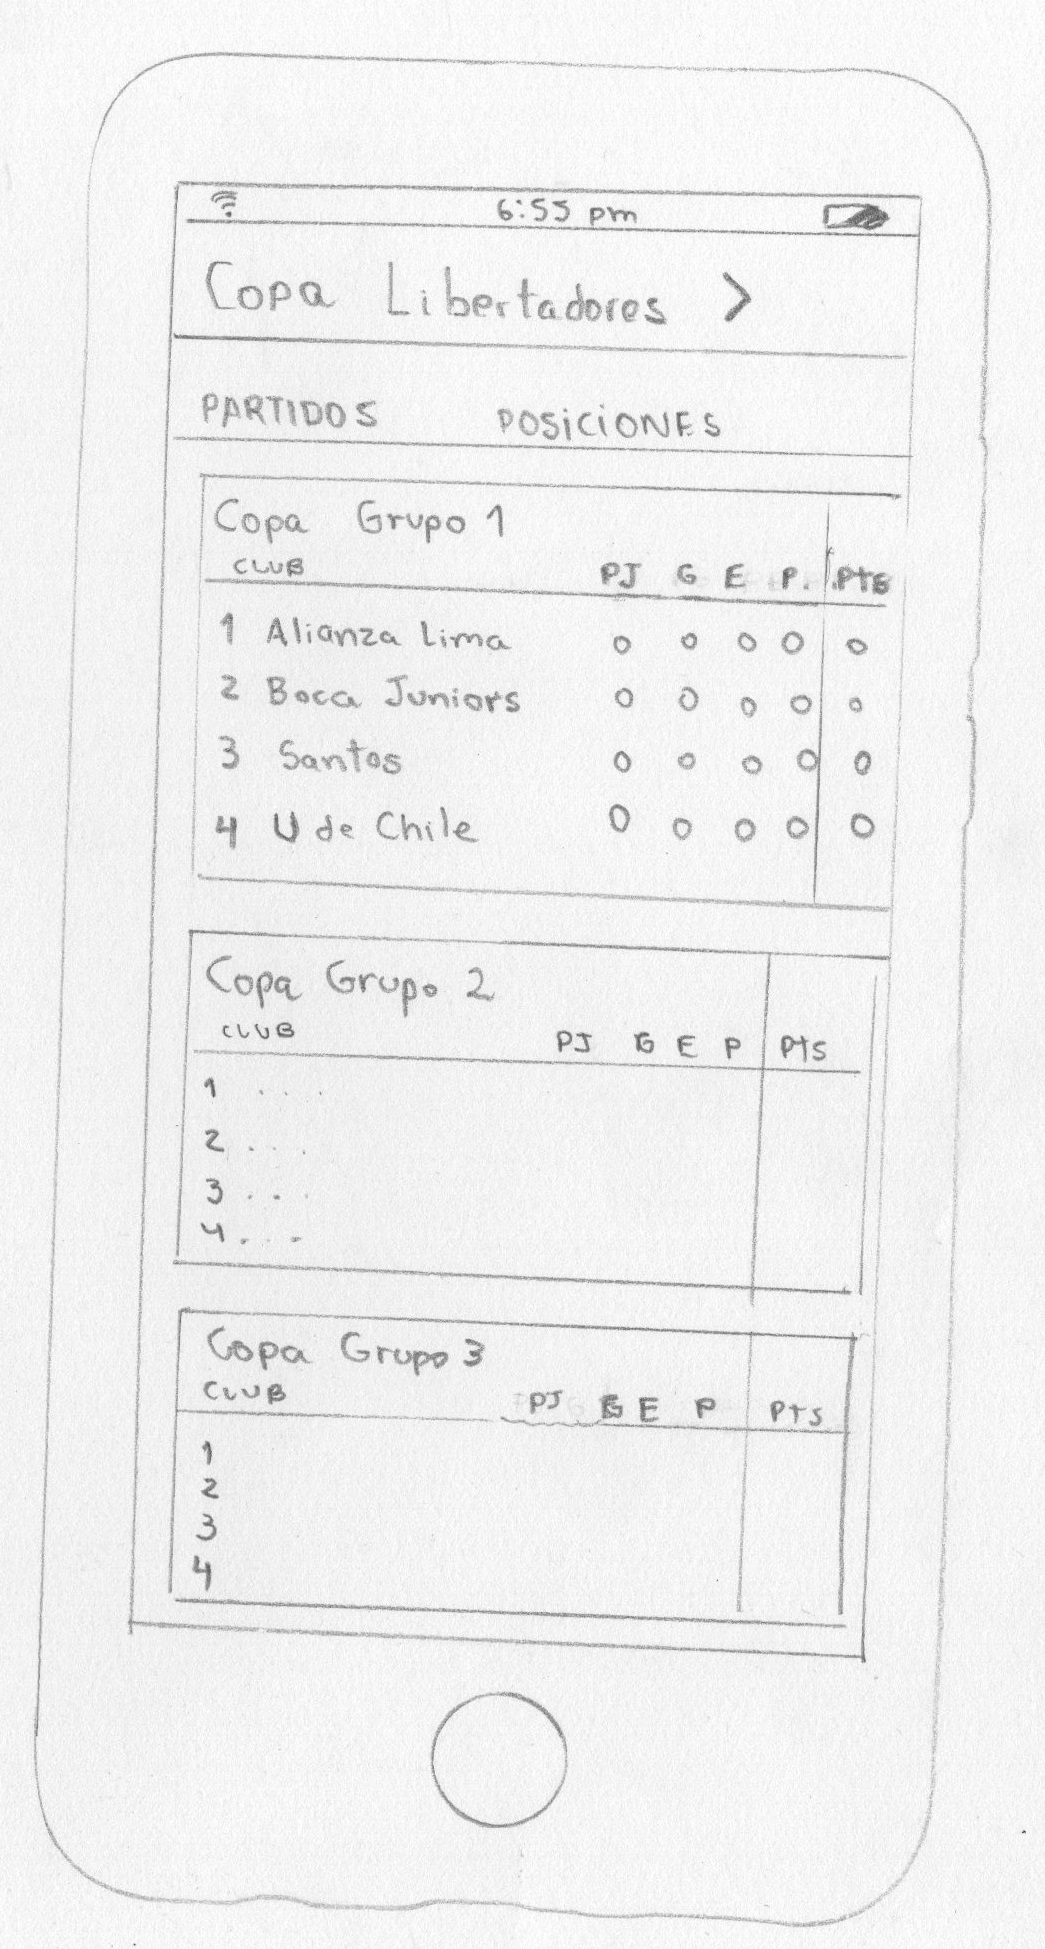 6:55 pm
Copa Libertadores >
PARTIDOS POSICIONES
Copa Grupo 1
CLUB PJ G E P. Pts
1 Alianza Lima 0 0 0 0 0
2 Boca Juniors 0 0 0 0 0
3 Santos 0 0 0 0 0
4 U de Chile 0 0 0 0 0
Copa Grupo 2
CLUB PJ G E P Pts
1 . . .
2 . . .
3 . . .
4 . . .
Copa Grupo 3
CLUB PJ G E P Pts
1
2
3
4